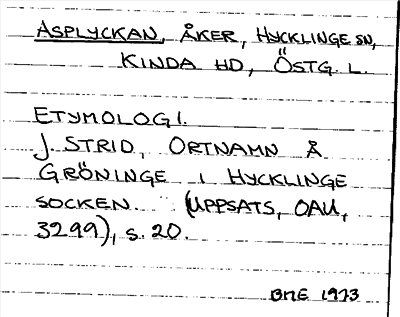 ASPLYCKAN, ÅKER, HYCKLINGE SN,
KINDA HD, ÖSTG. L.
ETYMOLOGI.
J. STRID, ORTNAMN Å
GRÖNINGE I HYCKLINGE
SOCKEN. (UPPSATS, OAU,
3299), s. 20.
BME 1973